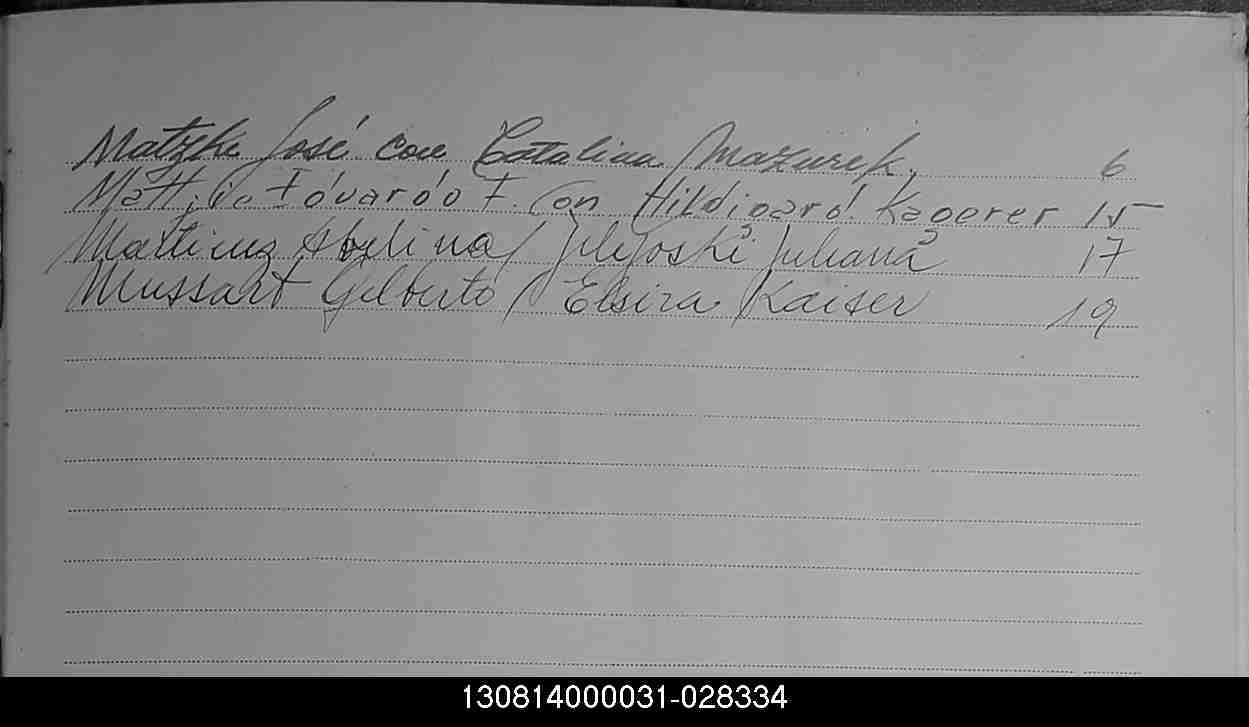 Matzke José con Catalina Mazurek. 6
Eduardo F. Con Hildigard Kagerer 15
Martinez Abelina / Juliana 17
Mussart Gilberto / Elsira Kaiser 19
130814000031-028334